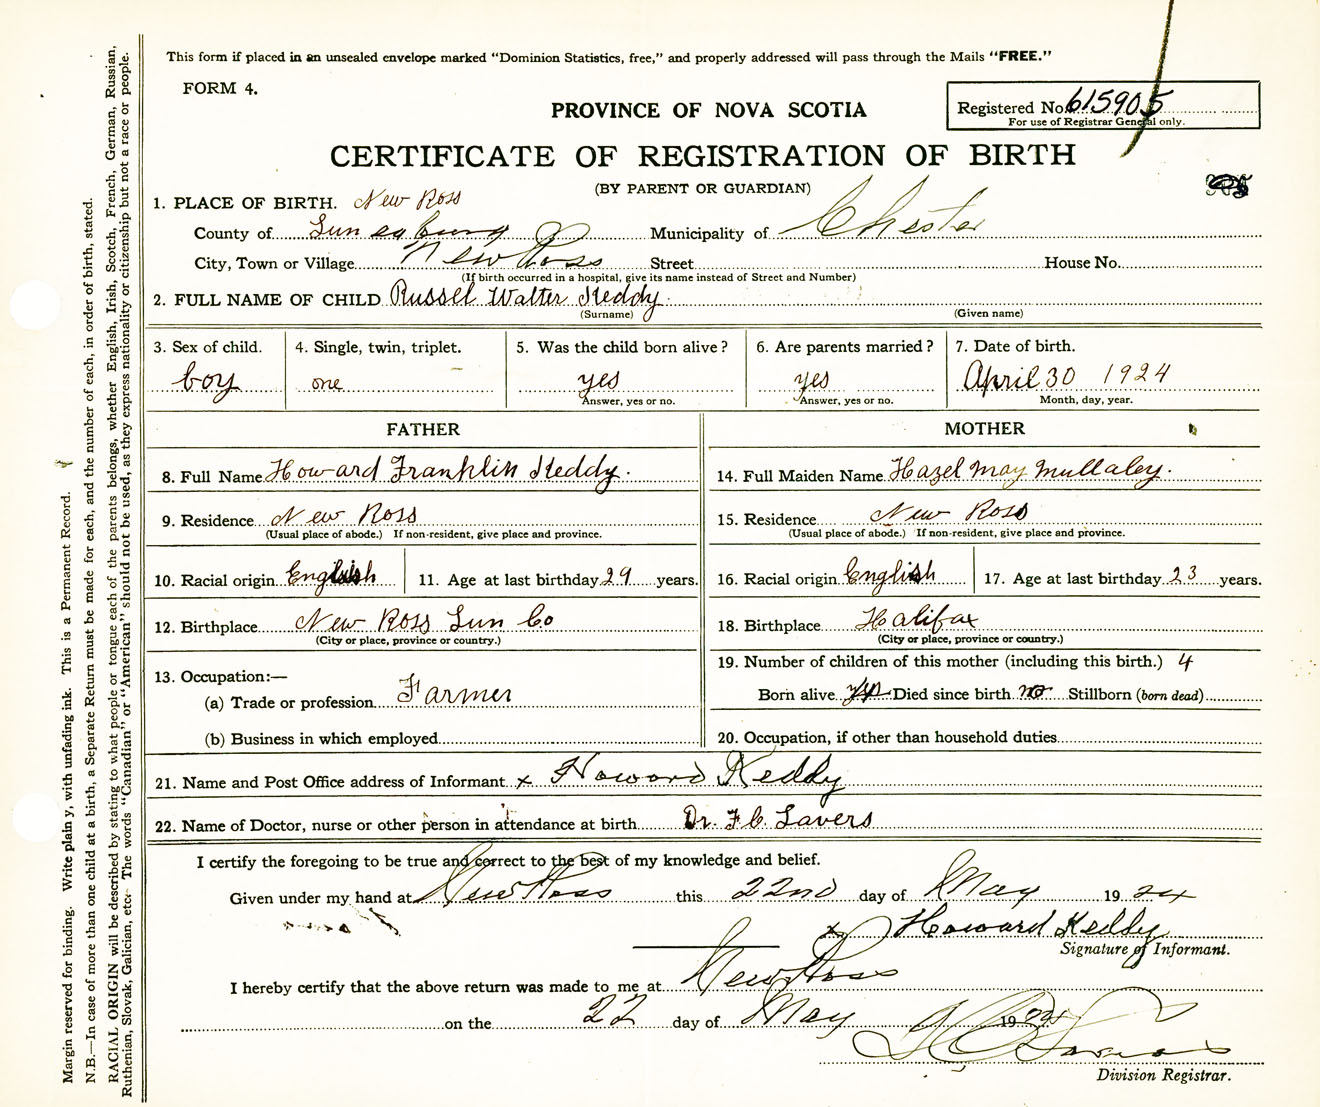 This form if placed in an unsealed envelope marked "Dominion Statistics, free," and properly addressed will pass through the Mails "FREE."
FORM 4.
PROVINCE OF NOVA SCOTIA
Registered No. 615905
For use of Registrar General only.
CERTIFICATE OF REGISTRATION OF BIRTH
(BY PARENT OR GUARDIAN)
1. PLACE OF BIRTH. New Ross
County of Lunenburg Municipality of Chester
City, Town or Village New Ross Street House No.
(If birth occurred in a hospital, give its name instead of Street and Number)
2. FULL NAME OF CHILD Russel Walter Keddy.
(Surname) (Given name)
3. Sex of child. 4. Single, twin, triplet. 5. Was the child born alive? 6. Are parents married? 7. Date of birth.
boy one yes yes April 30 1924
Answer, yes or no. Answer, yes or no. Month, day, year.
FATHER MOTHER
8. Full Name Howard Franklin Keddy. 14. Full Maiden Name Hazel May Mullaley.
9. Residence New Ross 15. Residence New Ross
(Usual place of abode.) If non-resident, give place and province. (Usual place of abode.) If non-resident, give place and province.
10. Racial origin English 11. Age at last birthday 29 years. 16. Racial origin English 17. Age at last birthday 23 years.
12. Birthplace New Ross Lun Co 18. Birthplace Halifax
(City or place, province or country.) (City or place, province or country.)
13. Occupation:— 19. Number of children of this mother (including this birth.) 4
(a) Trade or profession Farmer Born alive yes Died since birth no Stillborn (born dead)
(b) Business in which employed 20. Occupation, if other than household duties
21. Name and Post Office address of Informant x Howard Keddy
22. Name of Doctor, nurse or other person in attendance at birth Dr. F C. Lavers
I certify the foregoing to be true and correct to the best of my knowledge and belief.
Given under my hand at New Ross this 22nd day of May 1924
x Howard Keddy
Signature of Informant.
I hereby certify that the above return was made to me at New Ross
on the 22 day of May 1924
Lavers
Division Registrar.
Margin reserved for binding. Write plain y, with unfading ink. This is a Permanent Record.
N.B.—In case of more than one child at a birth, a Separate Return must be made for each, and the number of each, in order of birth, stated.
RACIAL ORIGIN will be described by stating to what people or tongue each of the parents belongs, whether English, Irish, Scotch, French, German, Russian,
Ruthenian, Slovak, Galician, etc. The words "Canadian" or "American" should not be used, as they express nationality or citizenship but not a race or people.